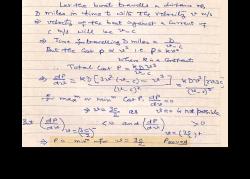 Let the boat travells a distance of D
miles in time t with the velocity v m/s
⇒ velocity of the boat against a current of
c m/s will be v-c
⇒ Time for travelling D miles = D/(v-c)
But the cost p ∝ v³ i.e. p = kv³
where k is a constant
Total Cost P = kDv³/(v-c)
⇒ dP/dv = kD [3v²(v-c) - v³]/(v-c)² = kDv²[2v-3c]/(v-c)²
for max^m or min^m Cost P, dP/dv = 0
⇒ v = 3c/2 as v=0 is not possible
But (dP/dv) v=(3c/2)- <0 and (dP/dv) v=(3c/2)+ >0
⇒ P = min^m for v = 3c/2 Proved